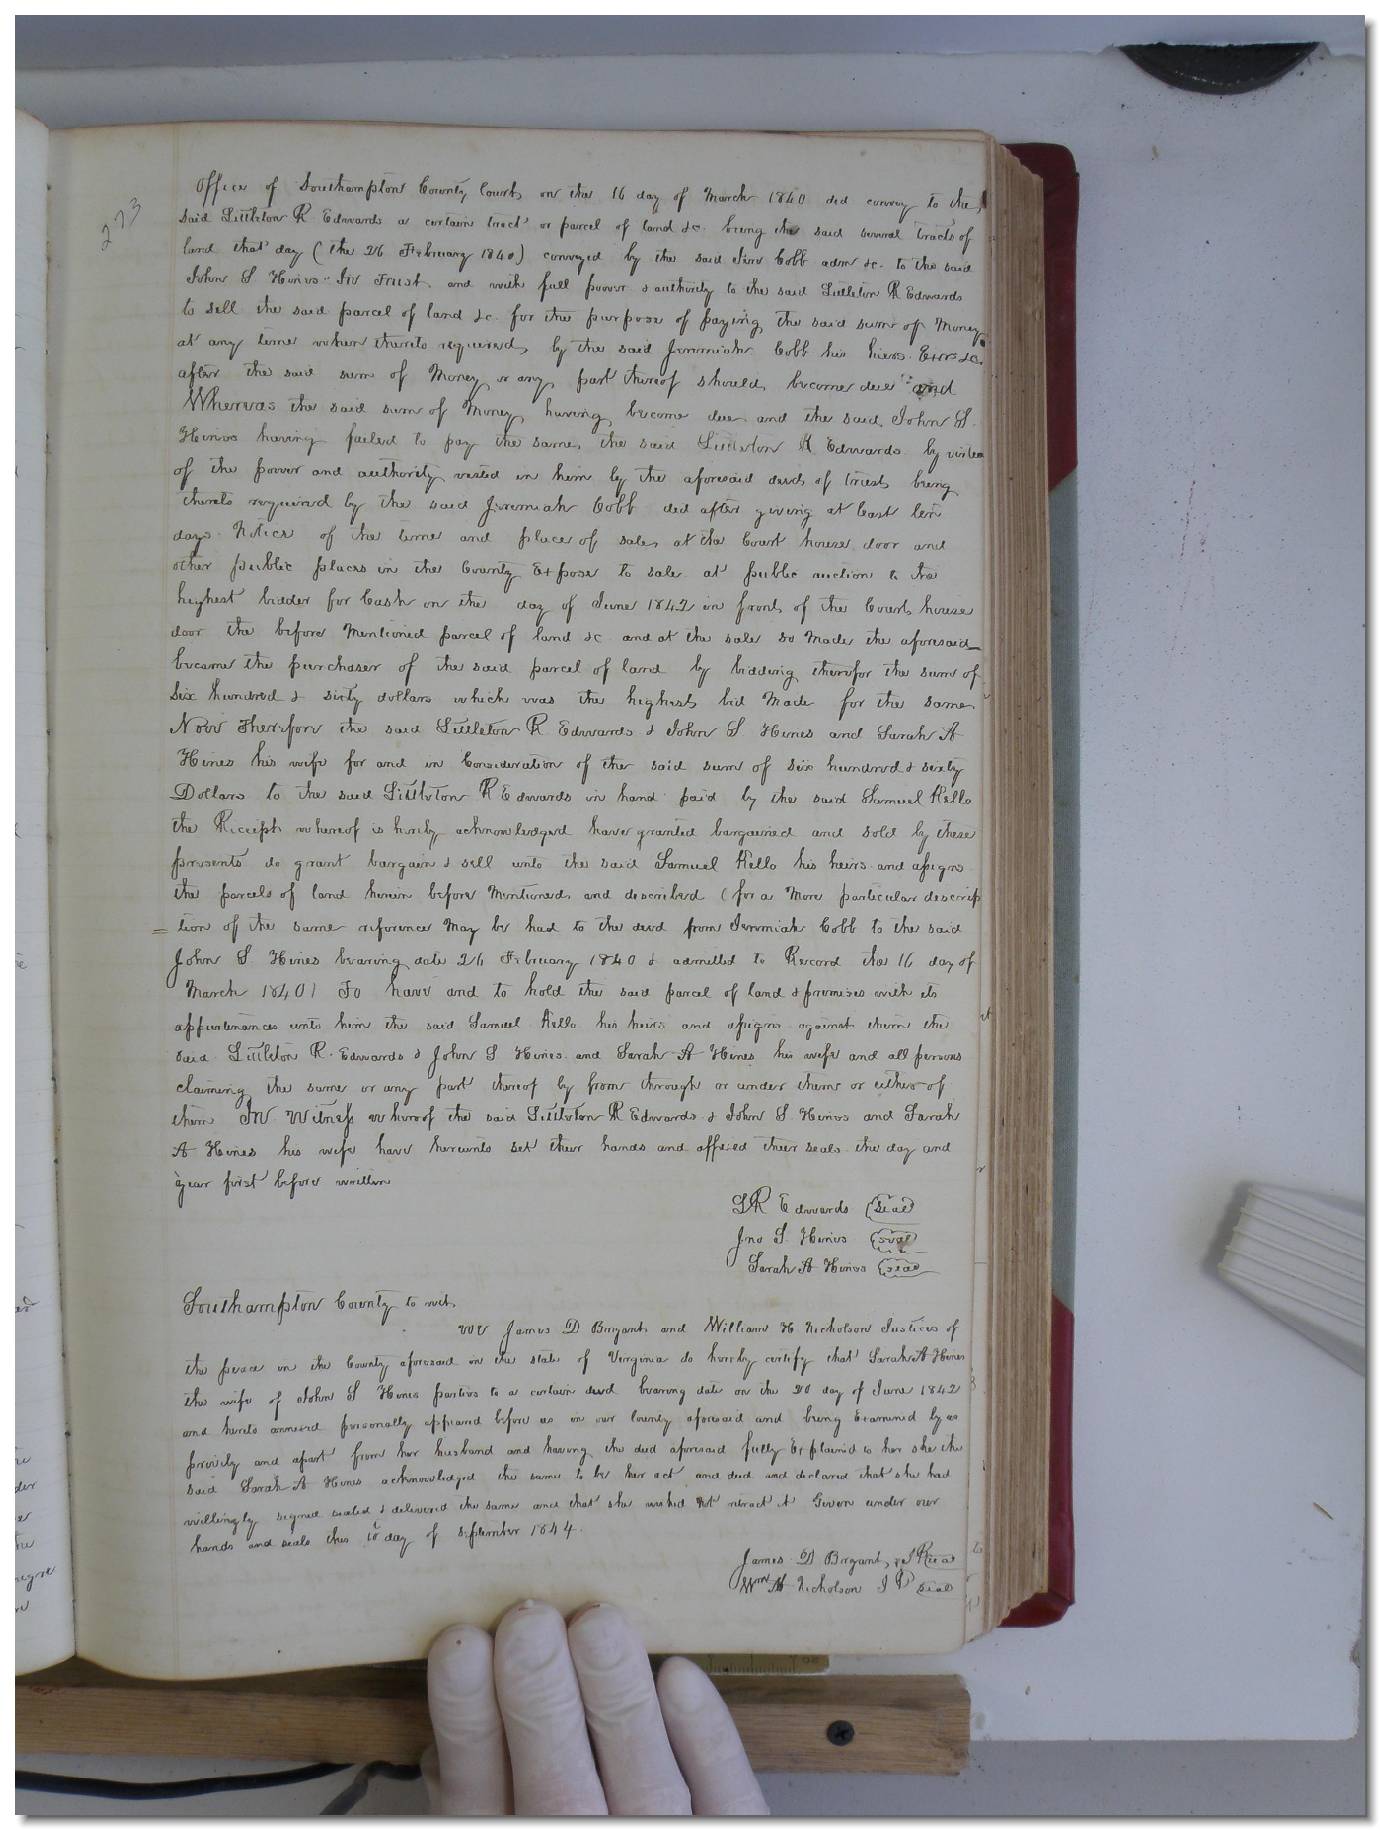 273
Office of Southampton County Court on the 16 day of March 1840 did convey to the
said Littleton R Edwards a certain tract or parcel of land &c. being the said several tracts of
land that day (the 26 February 1840) conveyed by the said Jere Cobb adm &c. to the said
John S Hines In Trust and with full power & authority to the said Littleton R Edwards
to sell the said parcel of land &c. for the purpose of paying the said sum of Money
at any time when thereto required, by the said Jeremiah Cobb his heirs Exrs &c.
after the said sum of Money or any part thereof should become due and
Whereas the said sum of Money having become due and the said John S.
Hines having failed to pay the same, the said Littleton R Edwards by virtue
of the power and authority vested in him by the aforesaid deed of trust being
thereto required by the said Jeremiah Cobb did after giving at least ten
days Notice of the time and place of sale, at the Court house door and
other public places in the County Expose to sale at public auction to the
highest bidder for Cash on the day of June 1842 in front of the Court house
door the before Mentioned parcel of land &c and at the sale so Made the aforesaid
became the purchaser of the said parcel of land by bidding therefor the sum of
six hundred & sixty dollars which was the highest bid Made for the same.
Now Therefore the said Littleton R Edwards & John S. Hines and Sarah A
Hines his wife for and in Consideration of the said sum of six hundred & sixty
Dollars to the said Littleton R Edwards in hand paid by the said Samuel Kello
the Receipt whereof is hereby acknowledged have granted bargained and sold by these
presents do grant bargain & sell unto the said Samuel Kello his heirs and assigns
the parcels of land herein before Mentioned and described (for a More particular descrip
= tion of the same reference May be had to the deed from Jeremiah Cobb to the said
John S. Hines bearing date 26 February 1840 & admitted to Record the 16 day of
March 1840) To have and to hold the said parcel of land & premises with its
appurtenances unto him the said Samuel Kello his heirs and assigns against them the
said Littleton R. Edwards & John S Hines and Sarah A Hines his wife and all persons
claiming the same or any part thereof by from through or under them or either of
them In Witness whereof the said Littleton R Edwards & John S. Hines and Sarah
A Hines his wife have hereunto set their hands and affixed their seals the day and
year first before written
L R Edwards seal
Jno S. Hines seal
Sarah A Hines seal
Southampton County to wit,
We James D Bryant and William H Nicholson Justices of
the peace in the County aforesaid in the state of Virginia do hereby certify that Sarah A Hines
the wife of John S Hines parties to a certain deed bearing date on the 20 day of June 1842
and hereto annexed personally appeared before us in our County aforesaid and being Examined by us
privily and apart from her husband and having the deed aforesaid fully Explained to her she the
said Sarah A Hines acknowledged the same to be her act and deed and declared that she had
willingly signed sealed & delivered the same and that she wished not retract it Given under our
hands and seals this day of September 1844.
James D Bryant seal
Wm H Nicholson J P seal